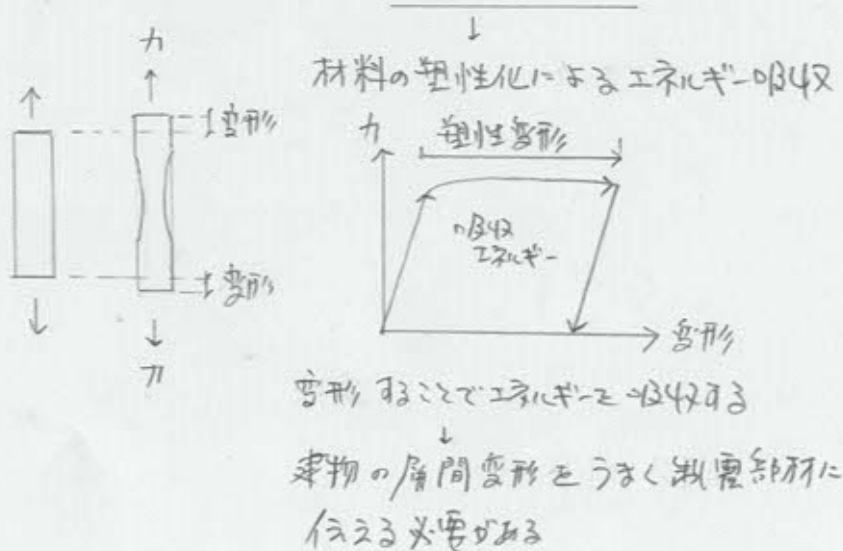 材料の塑性化によるエネルギー吸収
力
変形
変形
力
力
塑性変形
吸収
エネルギー
変形
変形することでエネルギーを吸収する
建物の層間変形をうまく制震部材に
伝える必要がある